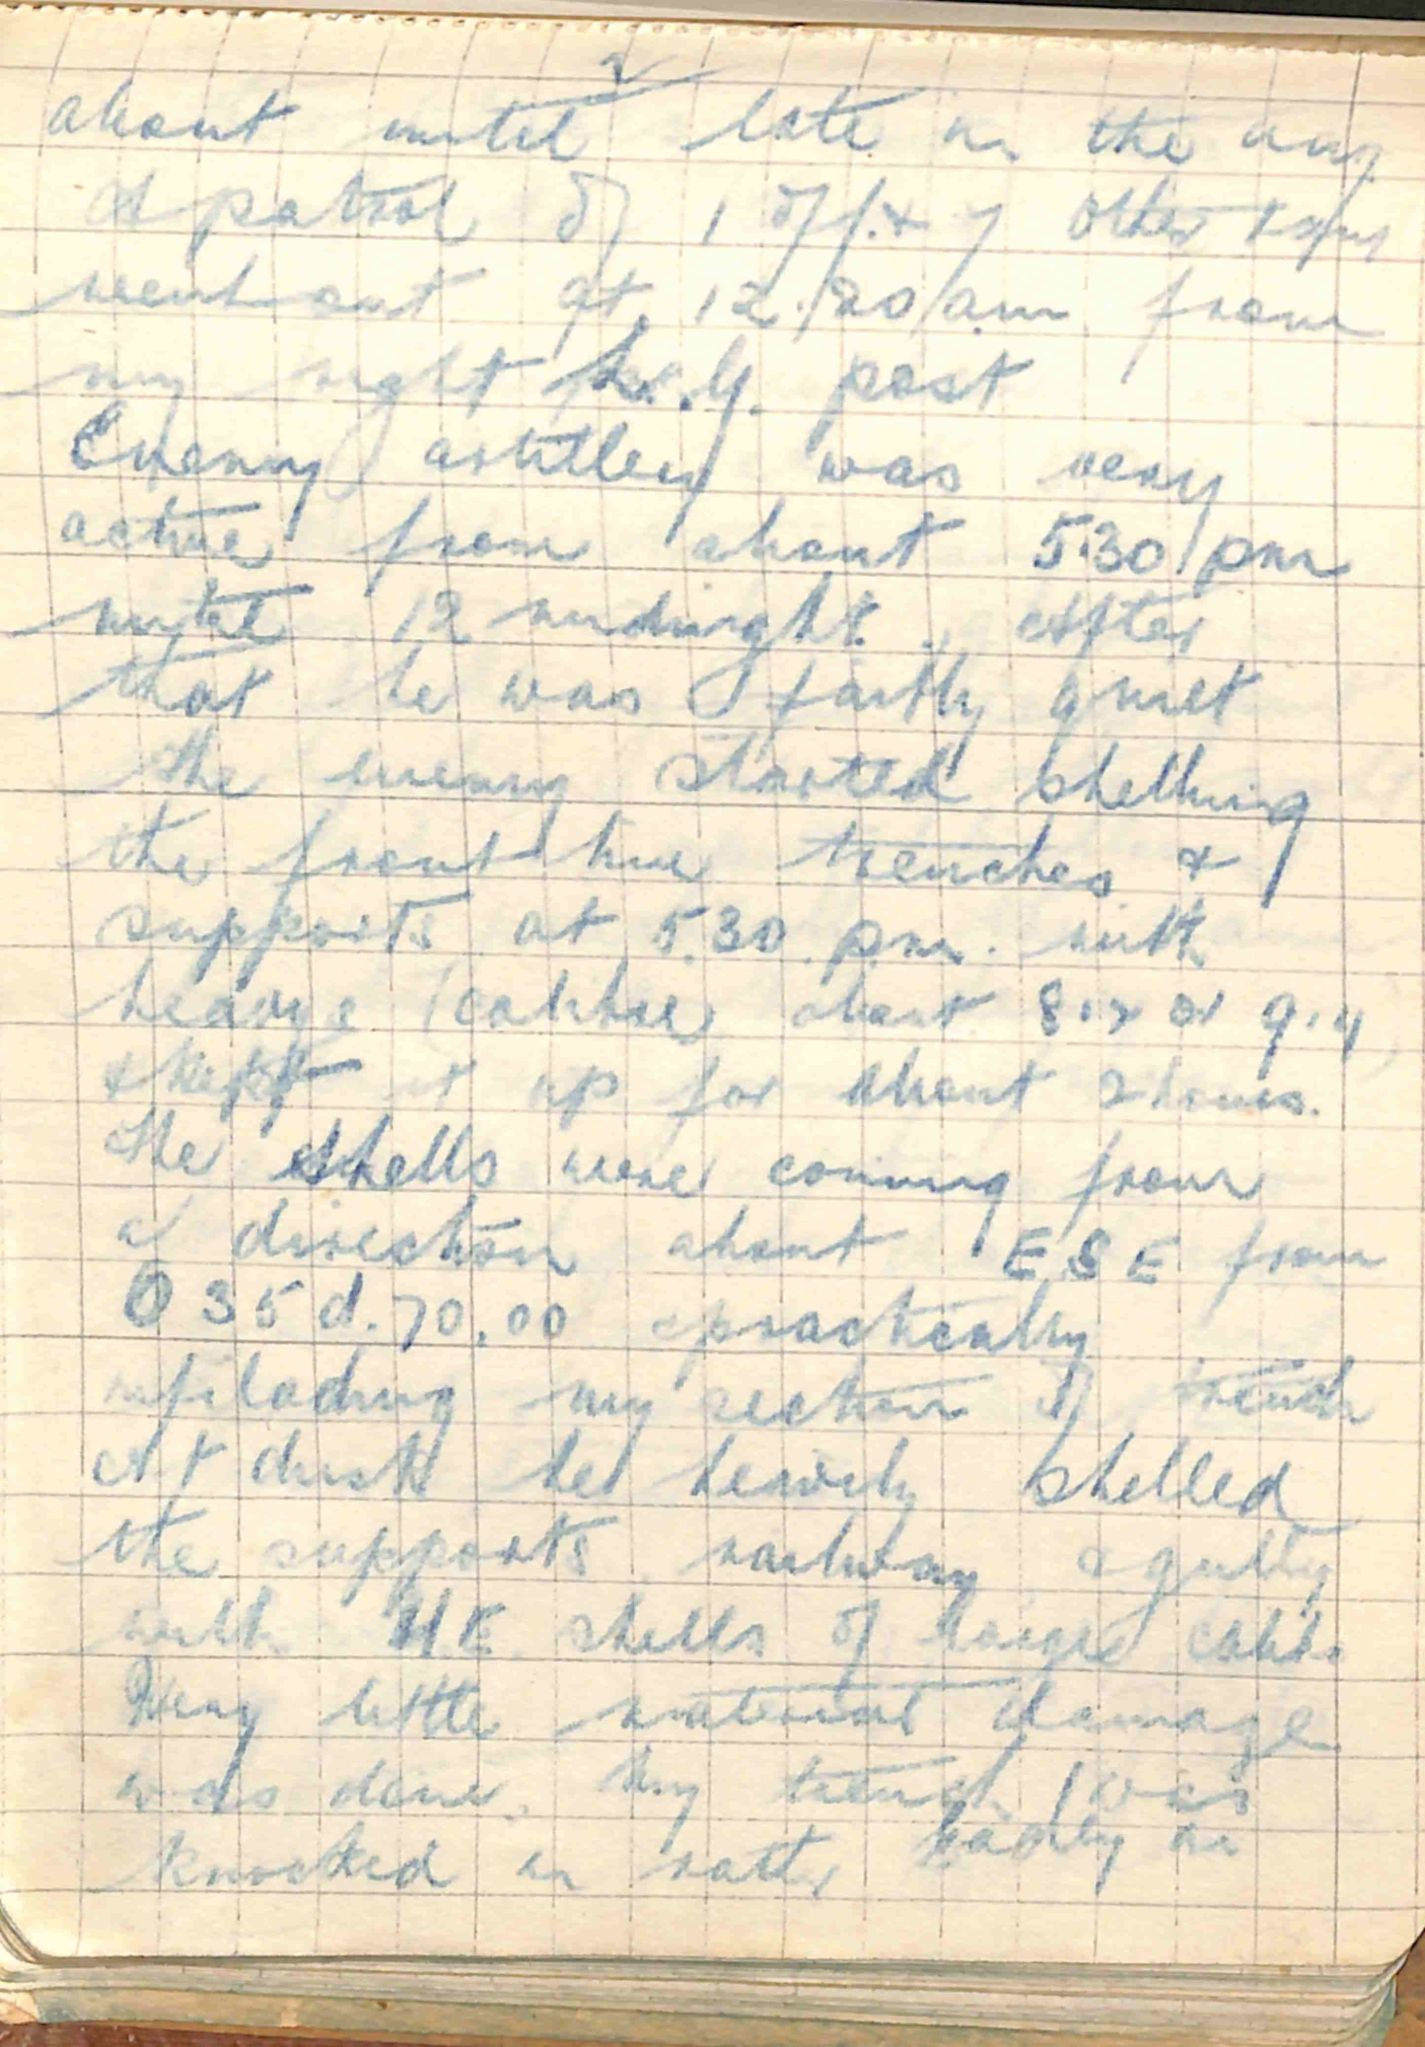 2
about until late in the
A patrol of 1 off. & 7 other
went out at 12.20 am from
my right L.G. post
Enemy artillery was very
active from about 5.30 pm
until 12 midnight. After
that he was fairly quiet
The enemy started shelling
the front line trenches &
supports at 5.30 pm. with
heavys (calibre about 8.2 or 9.4)
& kept it up for about 2 hours.
The shells were coming from
a direction about E S E from
O 35 d. 70.00 practically
enfilading my section of trench
At dusk he heavily shelled
the supports railway & gully
with H.E. shells of large calib.
Very little material damage
was done. My trench was
knocked in rather badly in